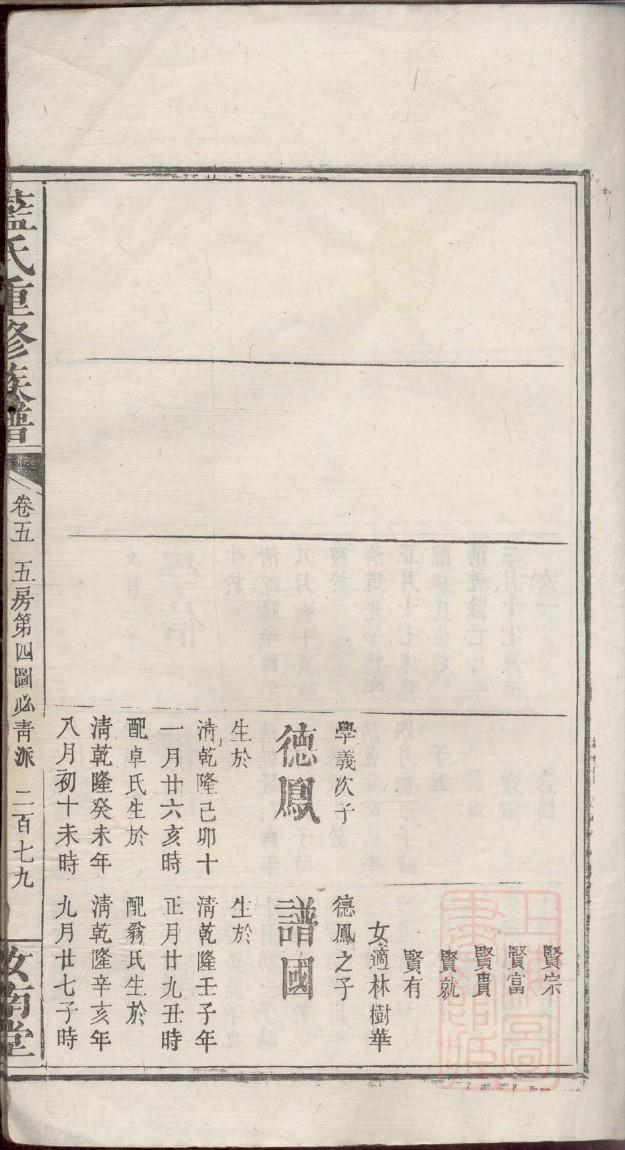 賢宗
賢富
賢貴
賢就
賢有
女適林樹華
學義次子
德鳳
生於
清乾隆己卯十
一月廿六亥時
配卓氏生於
清乾隆癸未年
八月初十未時
德鳳之子
譜國
生於
清乾隆壬子年
正月廿九丑時
配翁氏生於
清乾隆辛亥年
九月廿七子時
藍氏重修族譜
卷五 五房第四圖必青派 二百七九
汝南堂